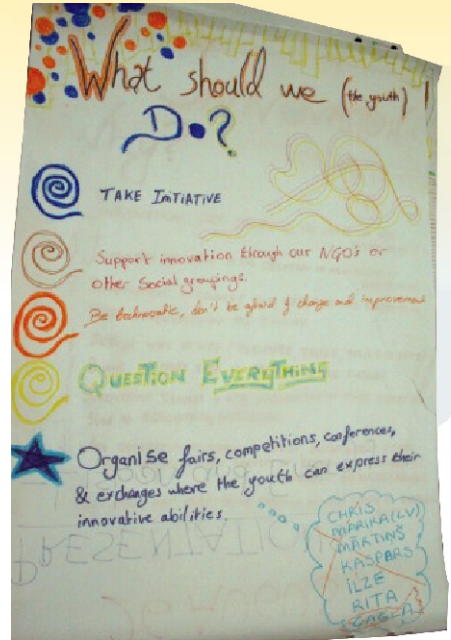 What should we (the youth) !
Do?
TAKE INITIATIVE
Support innovation through our NGO's or
other Social groupings.
Be technocratic, don't be afraid of change and improvement
QUESTION EVERYTHING
Organise fairs, competitions, conferences,
& exchanges where the youth can express their
innovative abilities.
CHRIS
MARIKA (LV)
MĀRTIŅŠ
KASPARS
ILZE
RITA
ÇAGLA
PRESENTATION